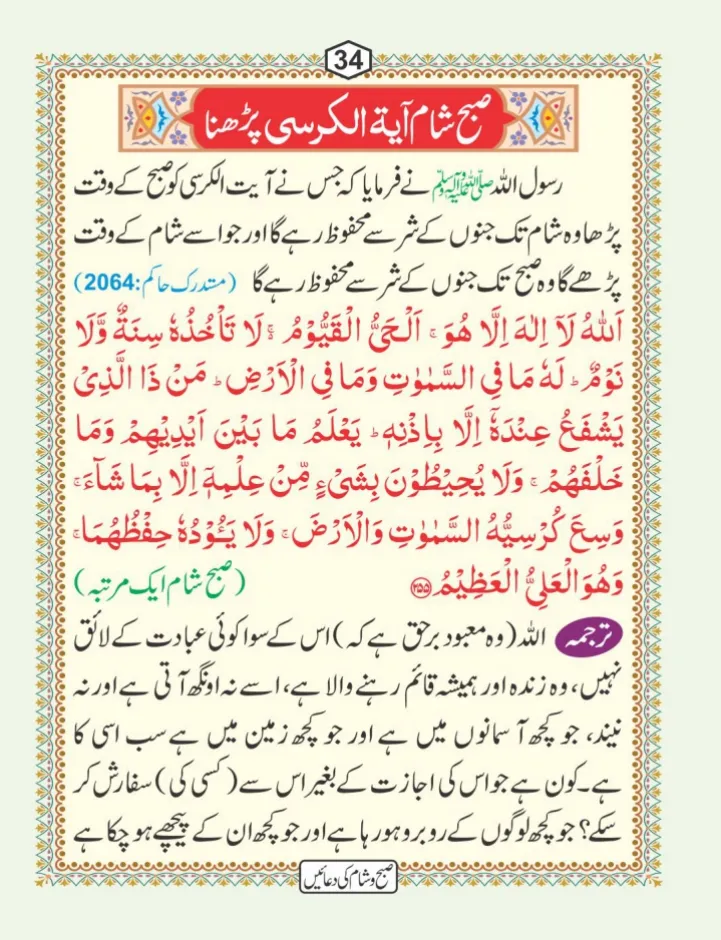 34
صبح شام آیة الکرسی پڑھنا
رسول اللہ ﷺ نے فرمایا کہ جس نے آیت الکرسی کو صبح کے وقت
پڑھا وہ شام تک جنوں کے شر سے محفوظ رہے گا اور جو اسے شام کے وقت
پڑھے گا وہ صبح تک جنوں کے شر سے محفوظ رہے گا (متدرک حاکم:2064)
اَللّٰهُ لَاۤ اِلٰهَ اِلَّا هُوَ ۚ اَلْحَیُّ الْقَیُّوْمُ ۬ۚ لَا تَاْخُذُهٗ سِنَةٌ وَّلَا
نَوْمٌ ؕ لَهٗ مَا فِی السَّمٰوٰتِ وَمَا فِی الْاَرْضِ ؕ مَنْ ذَا الَّذِیْ
یَشْفَعُ عِنْدَهٗۤ اِلَّا بِاِذْنِهٖ ؕ یَعْلَمُ مَا بَیْنَ اَیْدِیْهِمْ وَمَا
خَلْفَهُمْ ۚ وَلَا یُحِیْطُوْنَ بِشَیْءٍ مِّنْ عِلْمِهٖۤ اِلَّا بِمَا شَآءَ ۚ
وَسِعَ كُرْسِیُّهُ السَّمٰوٰتِ وَالْاَرْضَ ۚ وَلَا یَـُٔوْدُهٗ حِفْظُهُمَا ۚ
وَهُوَ الْعَلِیُّ الْعَظِیْمُ ﴿۲۵۵﴾ (صبح شام ایک مرتبہ)
ترجمہ اللہ (وہ معبود برحق ہے کہ) اس کے سوا کوئی عبادت کے لائق
نہیں، وہ زندہ اور ہمیشہ قائم رہنے والا ہے، اسے نہ اونگھ آتی ہے اور نہ
نیند، جو کچھ آسمانوں میں ہے اور جو کچھ زمین میں ہے سب اسی کا
ہے۔ کون ہے جو اس کی اجازت کے بغیر اس سے (کسی کی) سفارش کر
سکے؟ جو کچھ لوگوں کے روبرو ہو رہا ہے اور جو کچھ ان کے پیچھے ہو چکا ہے
صبح و شام کی دعائیں